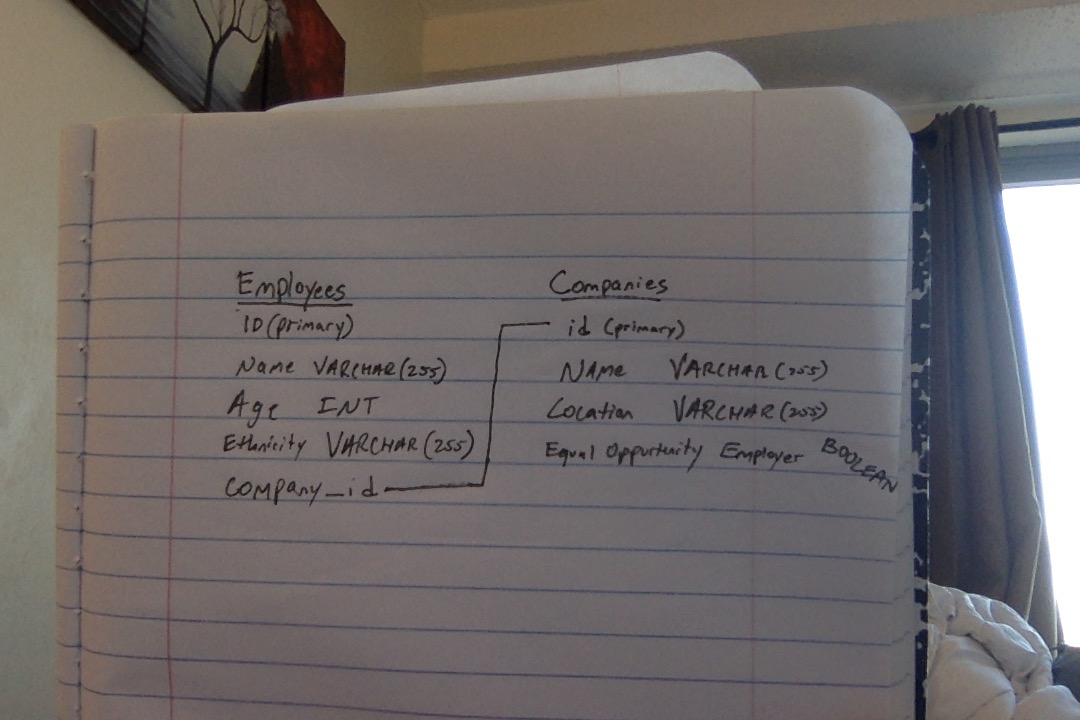 Employees
ID (primary)
Name VARCHAR(255)
Age INT
Ethnicity VARCHAR(255)
company_id
Companies
id (primary)
NAme VARCHAR(255)
Location VARCHAR(255)
Equal Opportunity Employer BOOLEAN